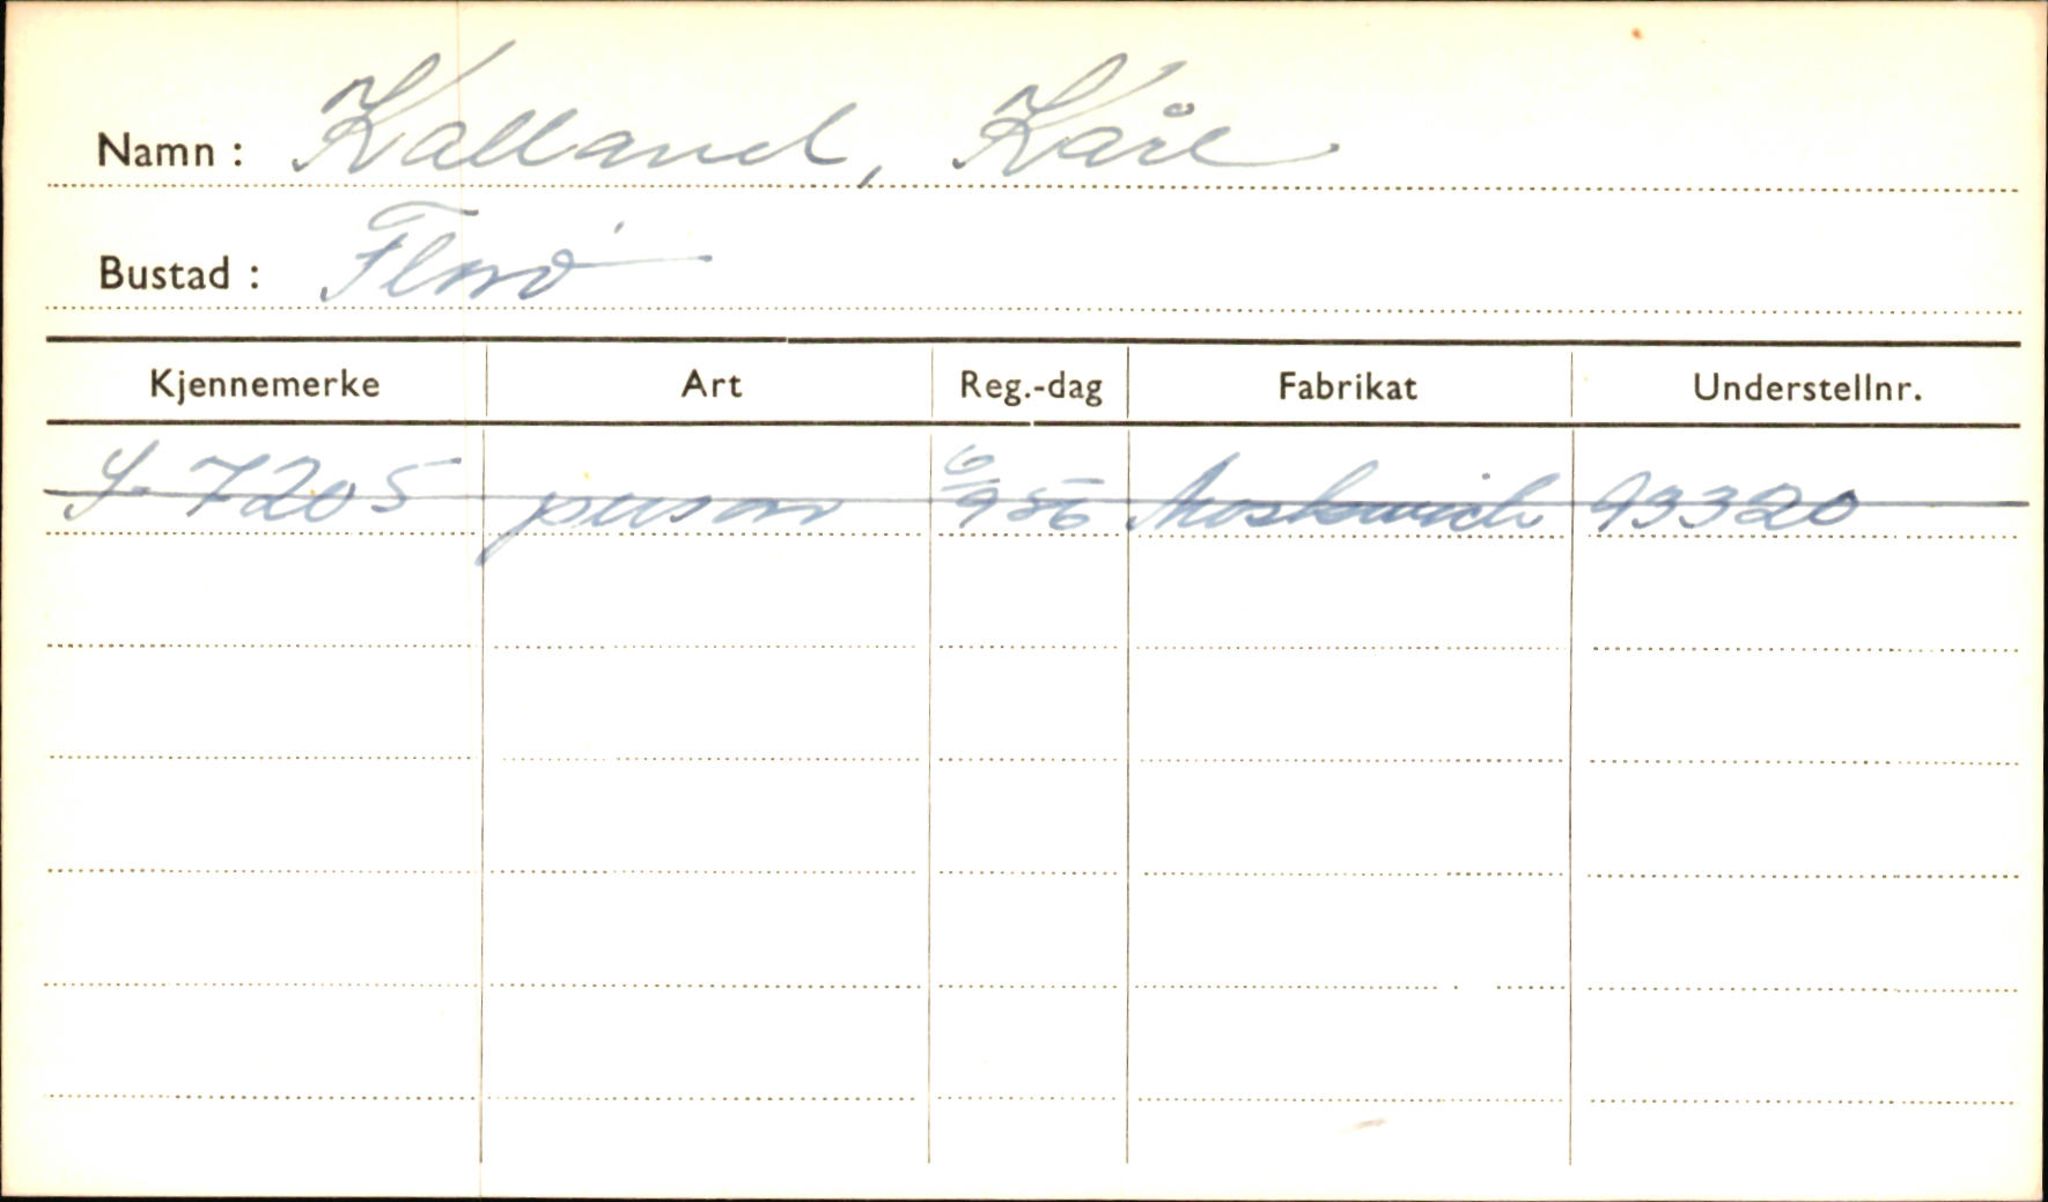 Namn : Kalland, Kåre
Bustad : Florø
Kjennemerke Art Reg.-dag Fabrikat Understellnr.
S-7205 person 6/956 Moskwich 93320